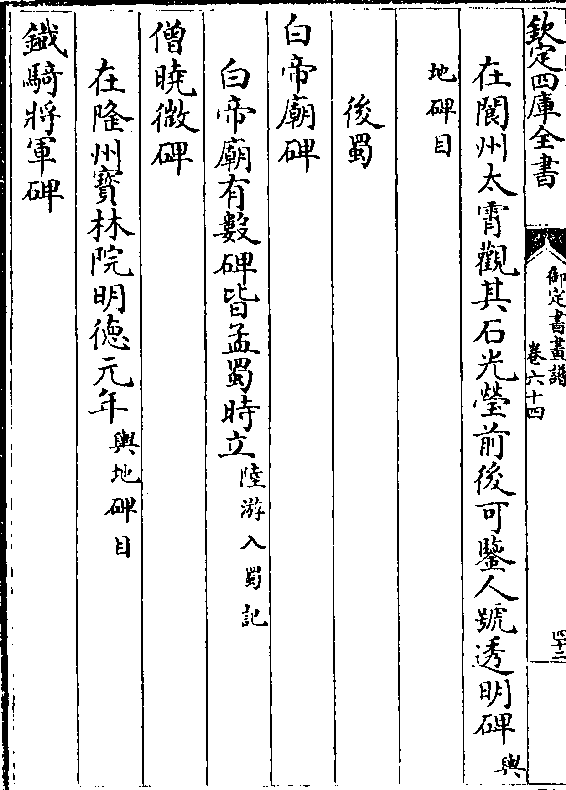 欽定四庫全書
御定書畫譜
卷六十四
四十二
在閬州太霄觀其石光瑩前後可鑒人號透明碑輿
地碑目
後蜀
白帝廟碑
白帝廟有數碑皆孟蜀時立陸游入蜀記
僧曉微碑
在隆州寳林院明德元年輿地碑目
鐵騎將軍碑